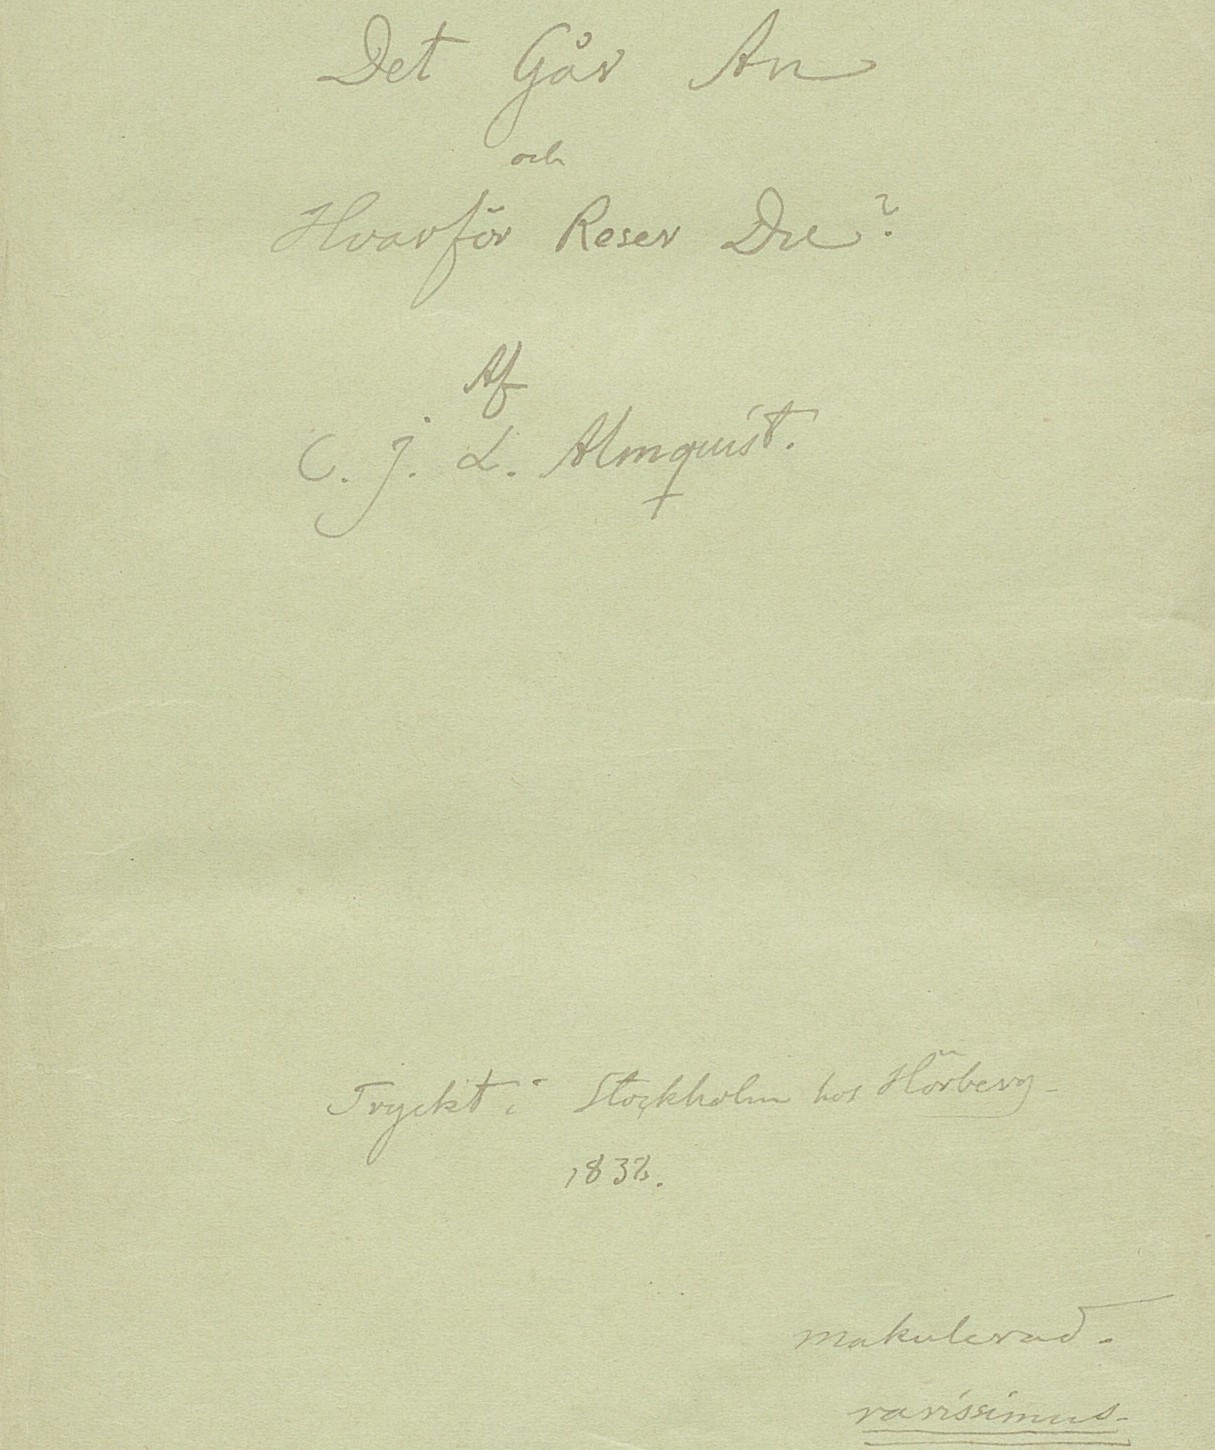 Det Går An
och
Hvarför Reser Du?
Af
C. J. L. Almquist.
Tryckt i Stockholm hos Hörberg
1838.
makulerad.
rarissimus